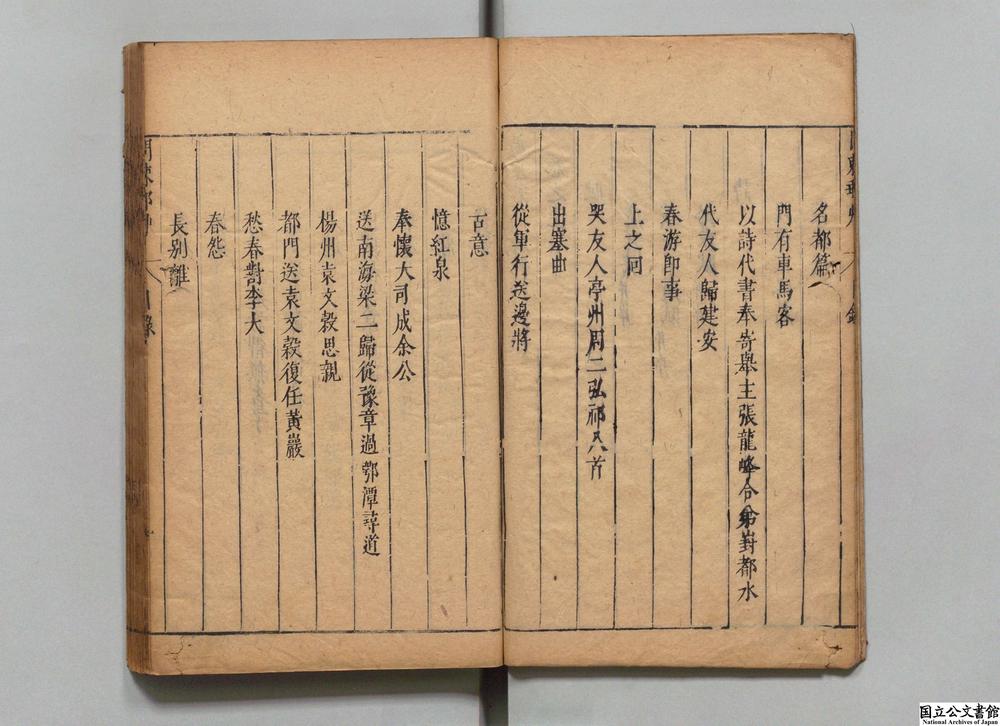 名都篇
門有車馬客
以詩代書奉寄舉主張龍峰令弟對都水
代友人歸建安
春游即事
上之回
哭友人亭州周二弘祁八首
出塞曲
從軍行送邊將
古意
憶紅泉
奉懷大司成余公
送南海梁二歸從豫章過鄂潭尋道
楊州袁文穀思親
都門送袁文穀復任黃巖
愁春對李大
春怨
長别離
国立公文書館
National Archives of Japan